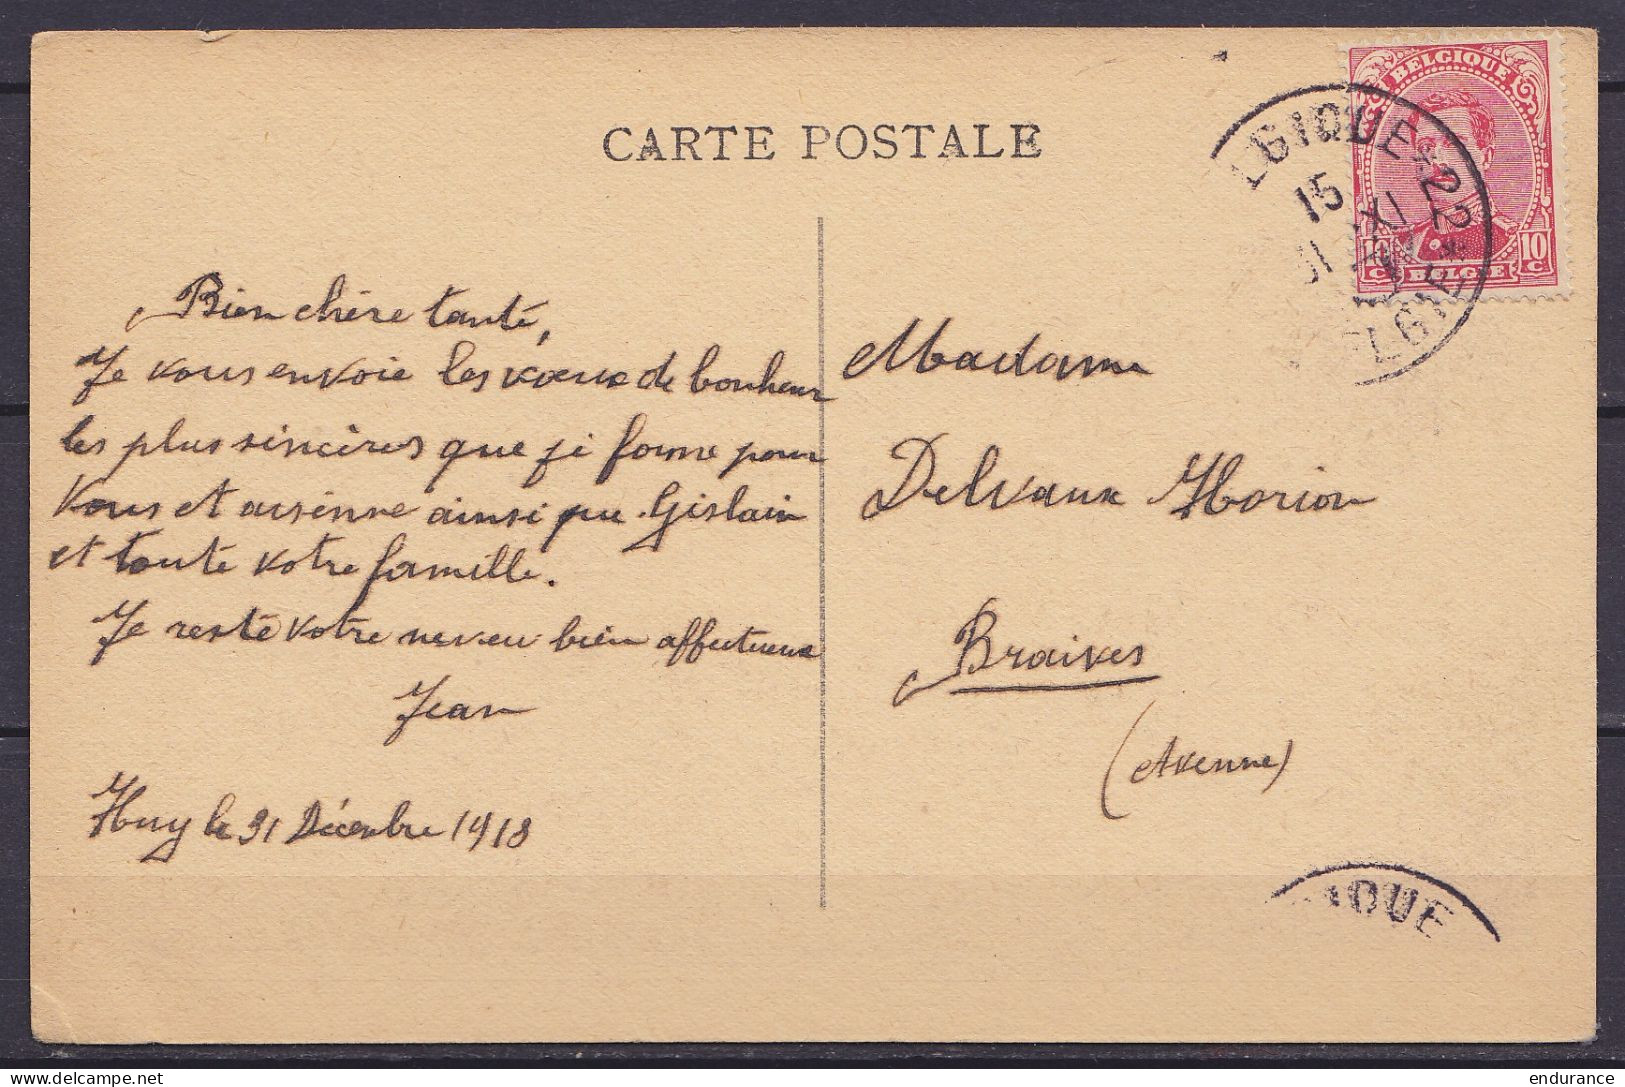 CARTE POSTALE
Bien chère tante,
Je vous envoie les vœux de bonheur
les plus sincères que je forme pour
vous et arsènne ainsi que Gislain
et toute votre famille.
Je reste votre neveu bien affectueux
Jean
Huy le 31 Décembre 1918
BELGIQUE
10 c
10 c
BELGIE
LGIQUE * 22 *
15
XI
LGIE
Madame
Delvaux Horion
Braives
(Avenne)
IQUE
endurance